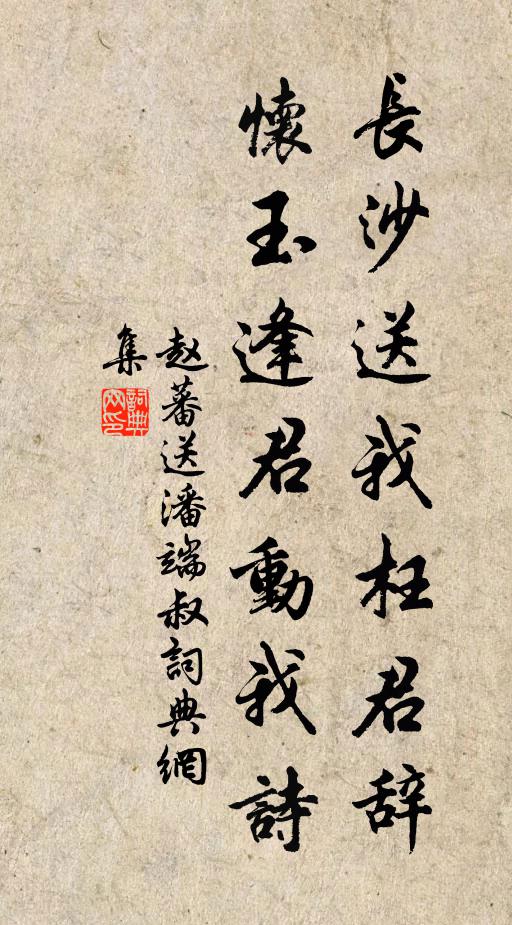 長沙送我枉君辞
懷玉逢君動我詩
赵蕃送潘端叔詞典網
集
詞典網印